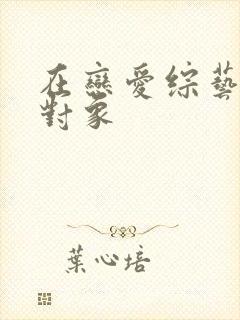 在戀愛綜藝
對象
葉心培